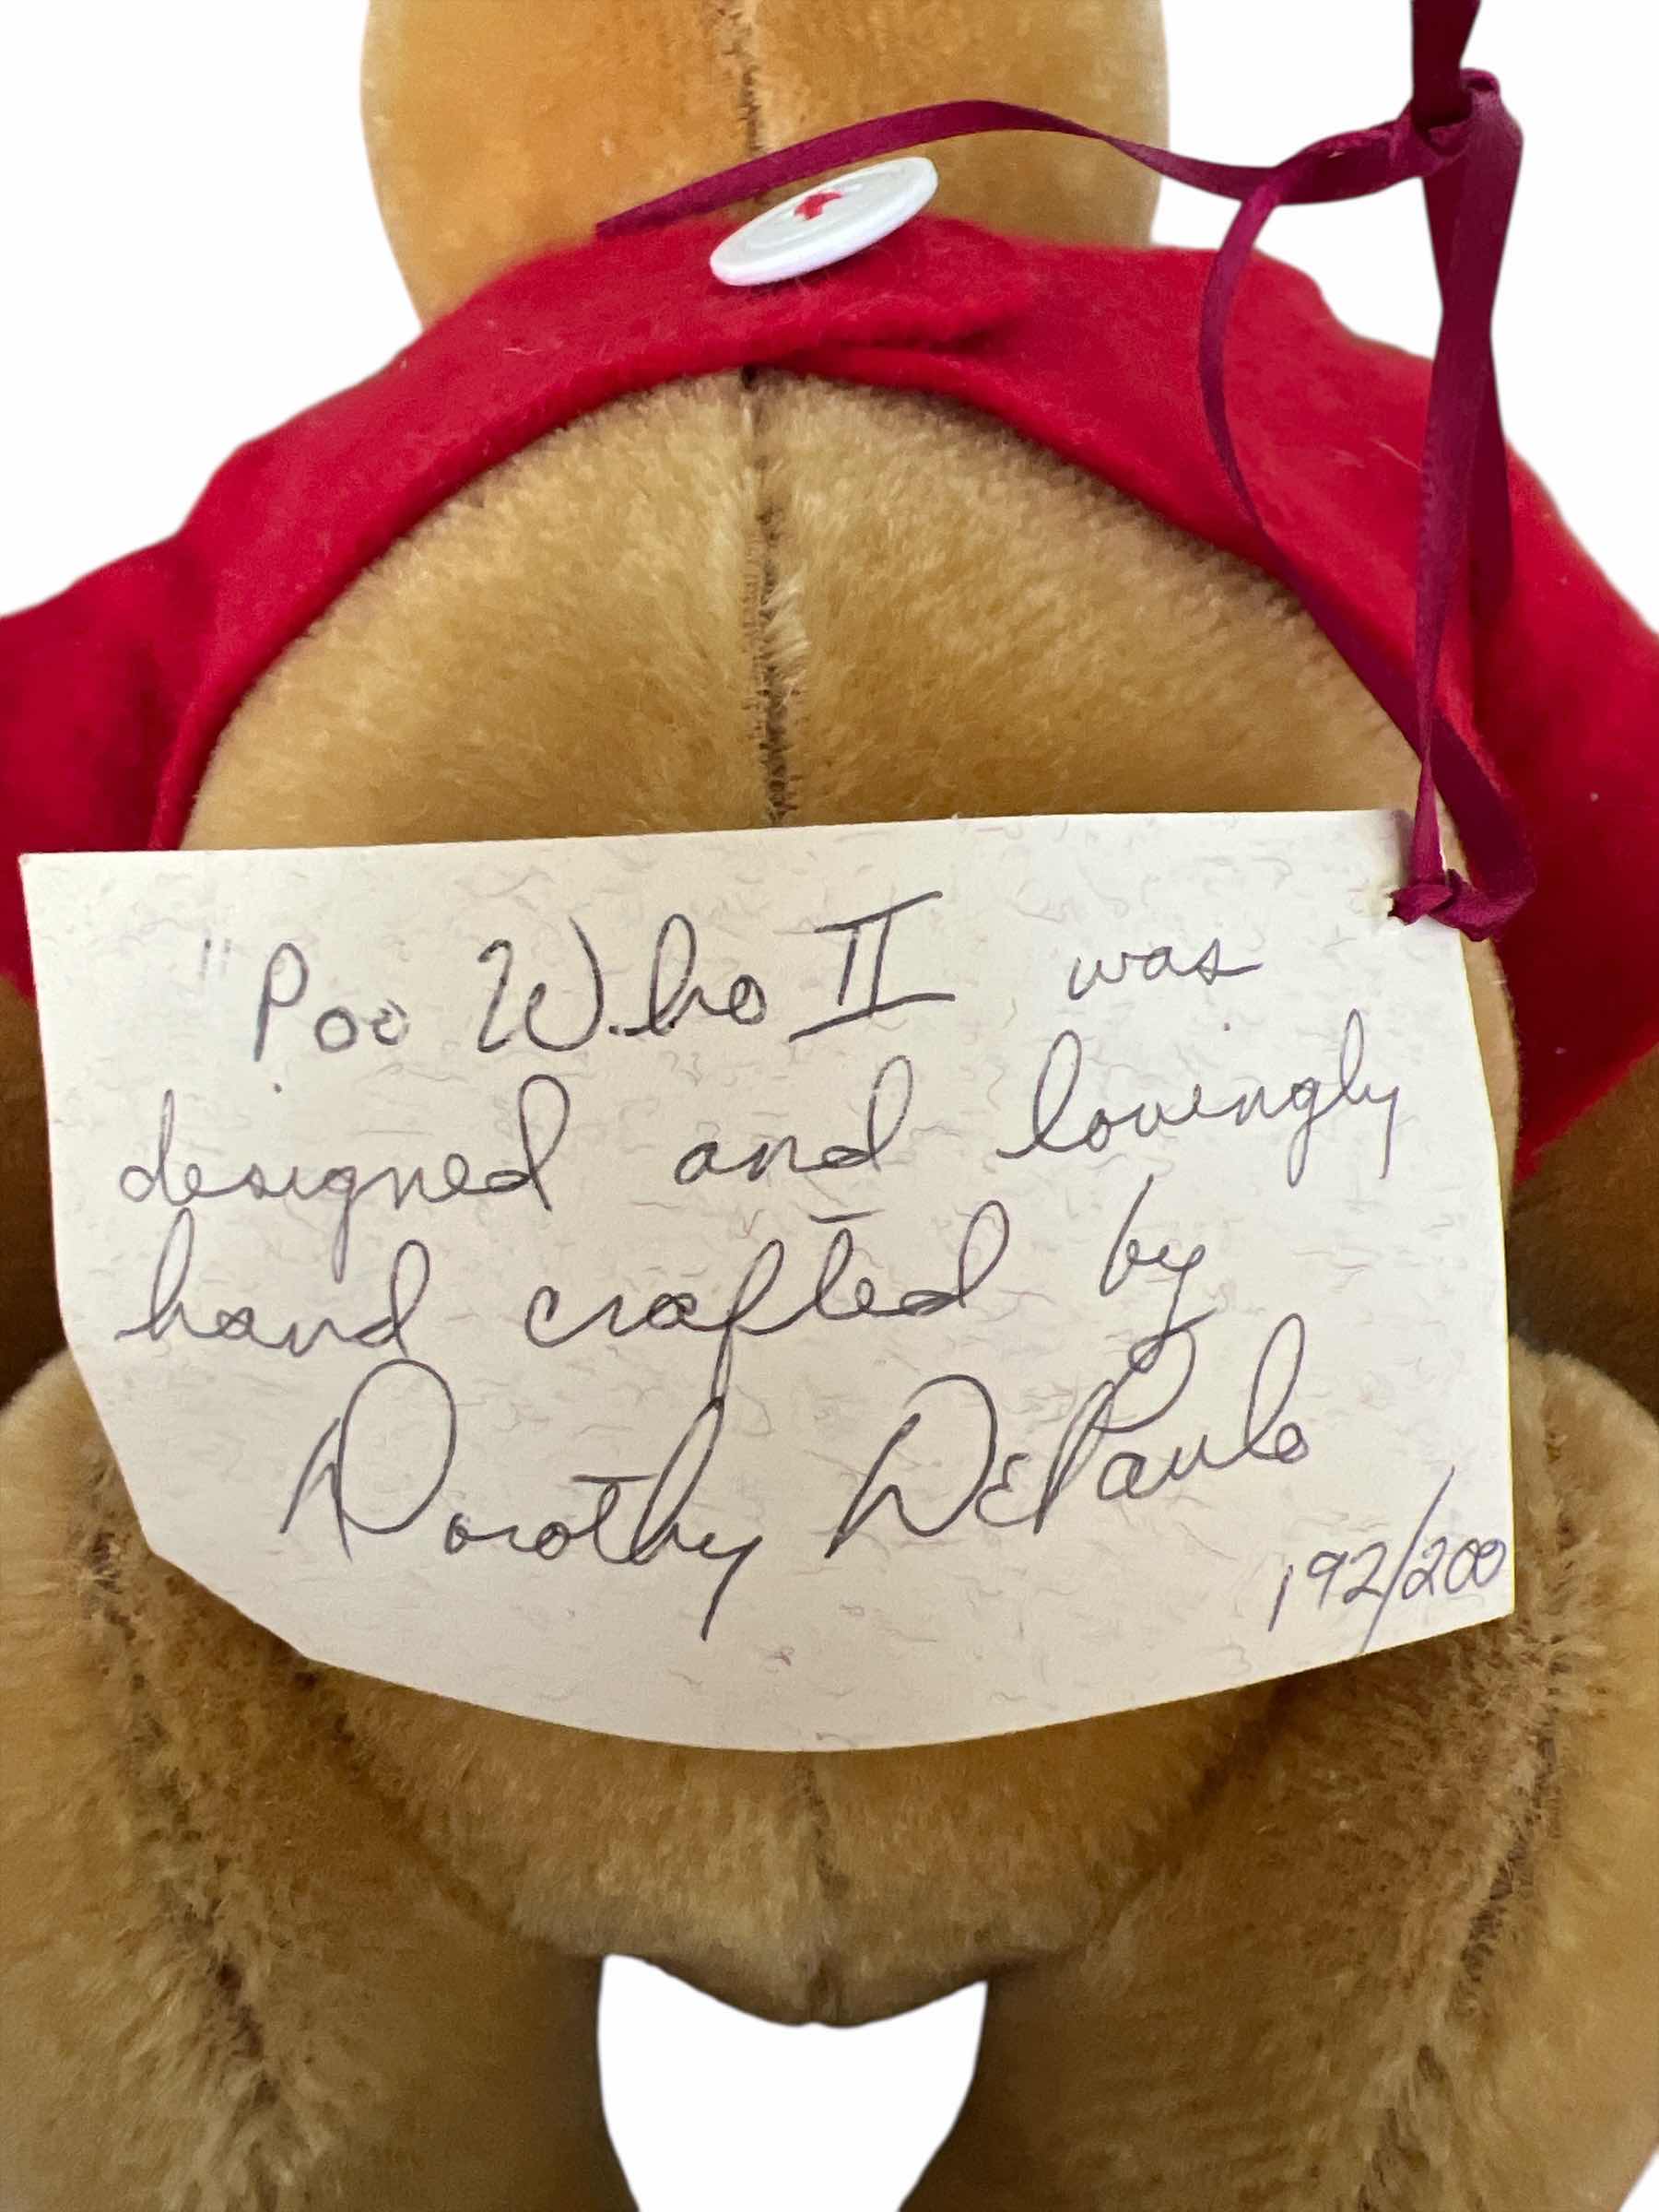 "Poo Who II was
designed and lovingly
hand crafted by
Dorothy DePaulo
192/200